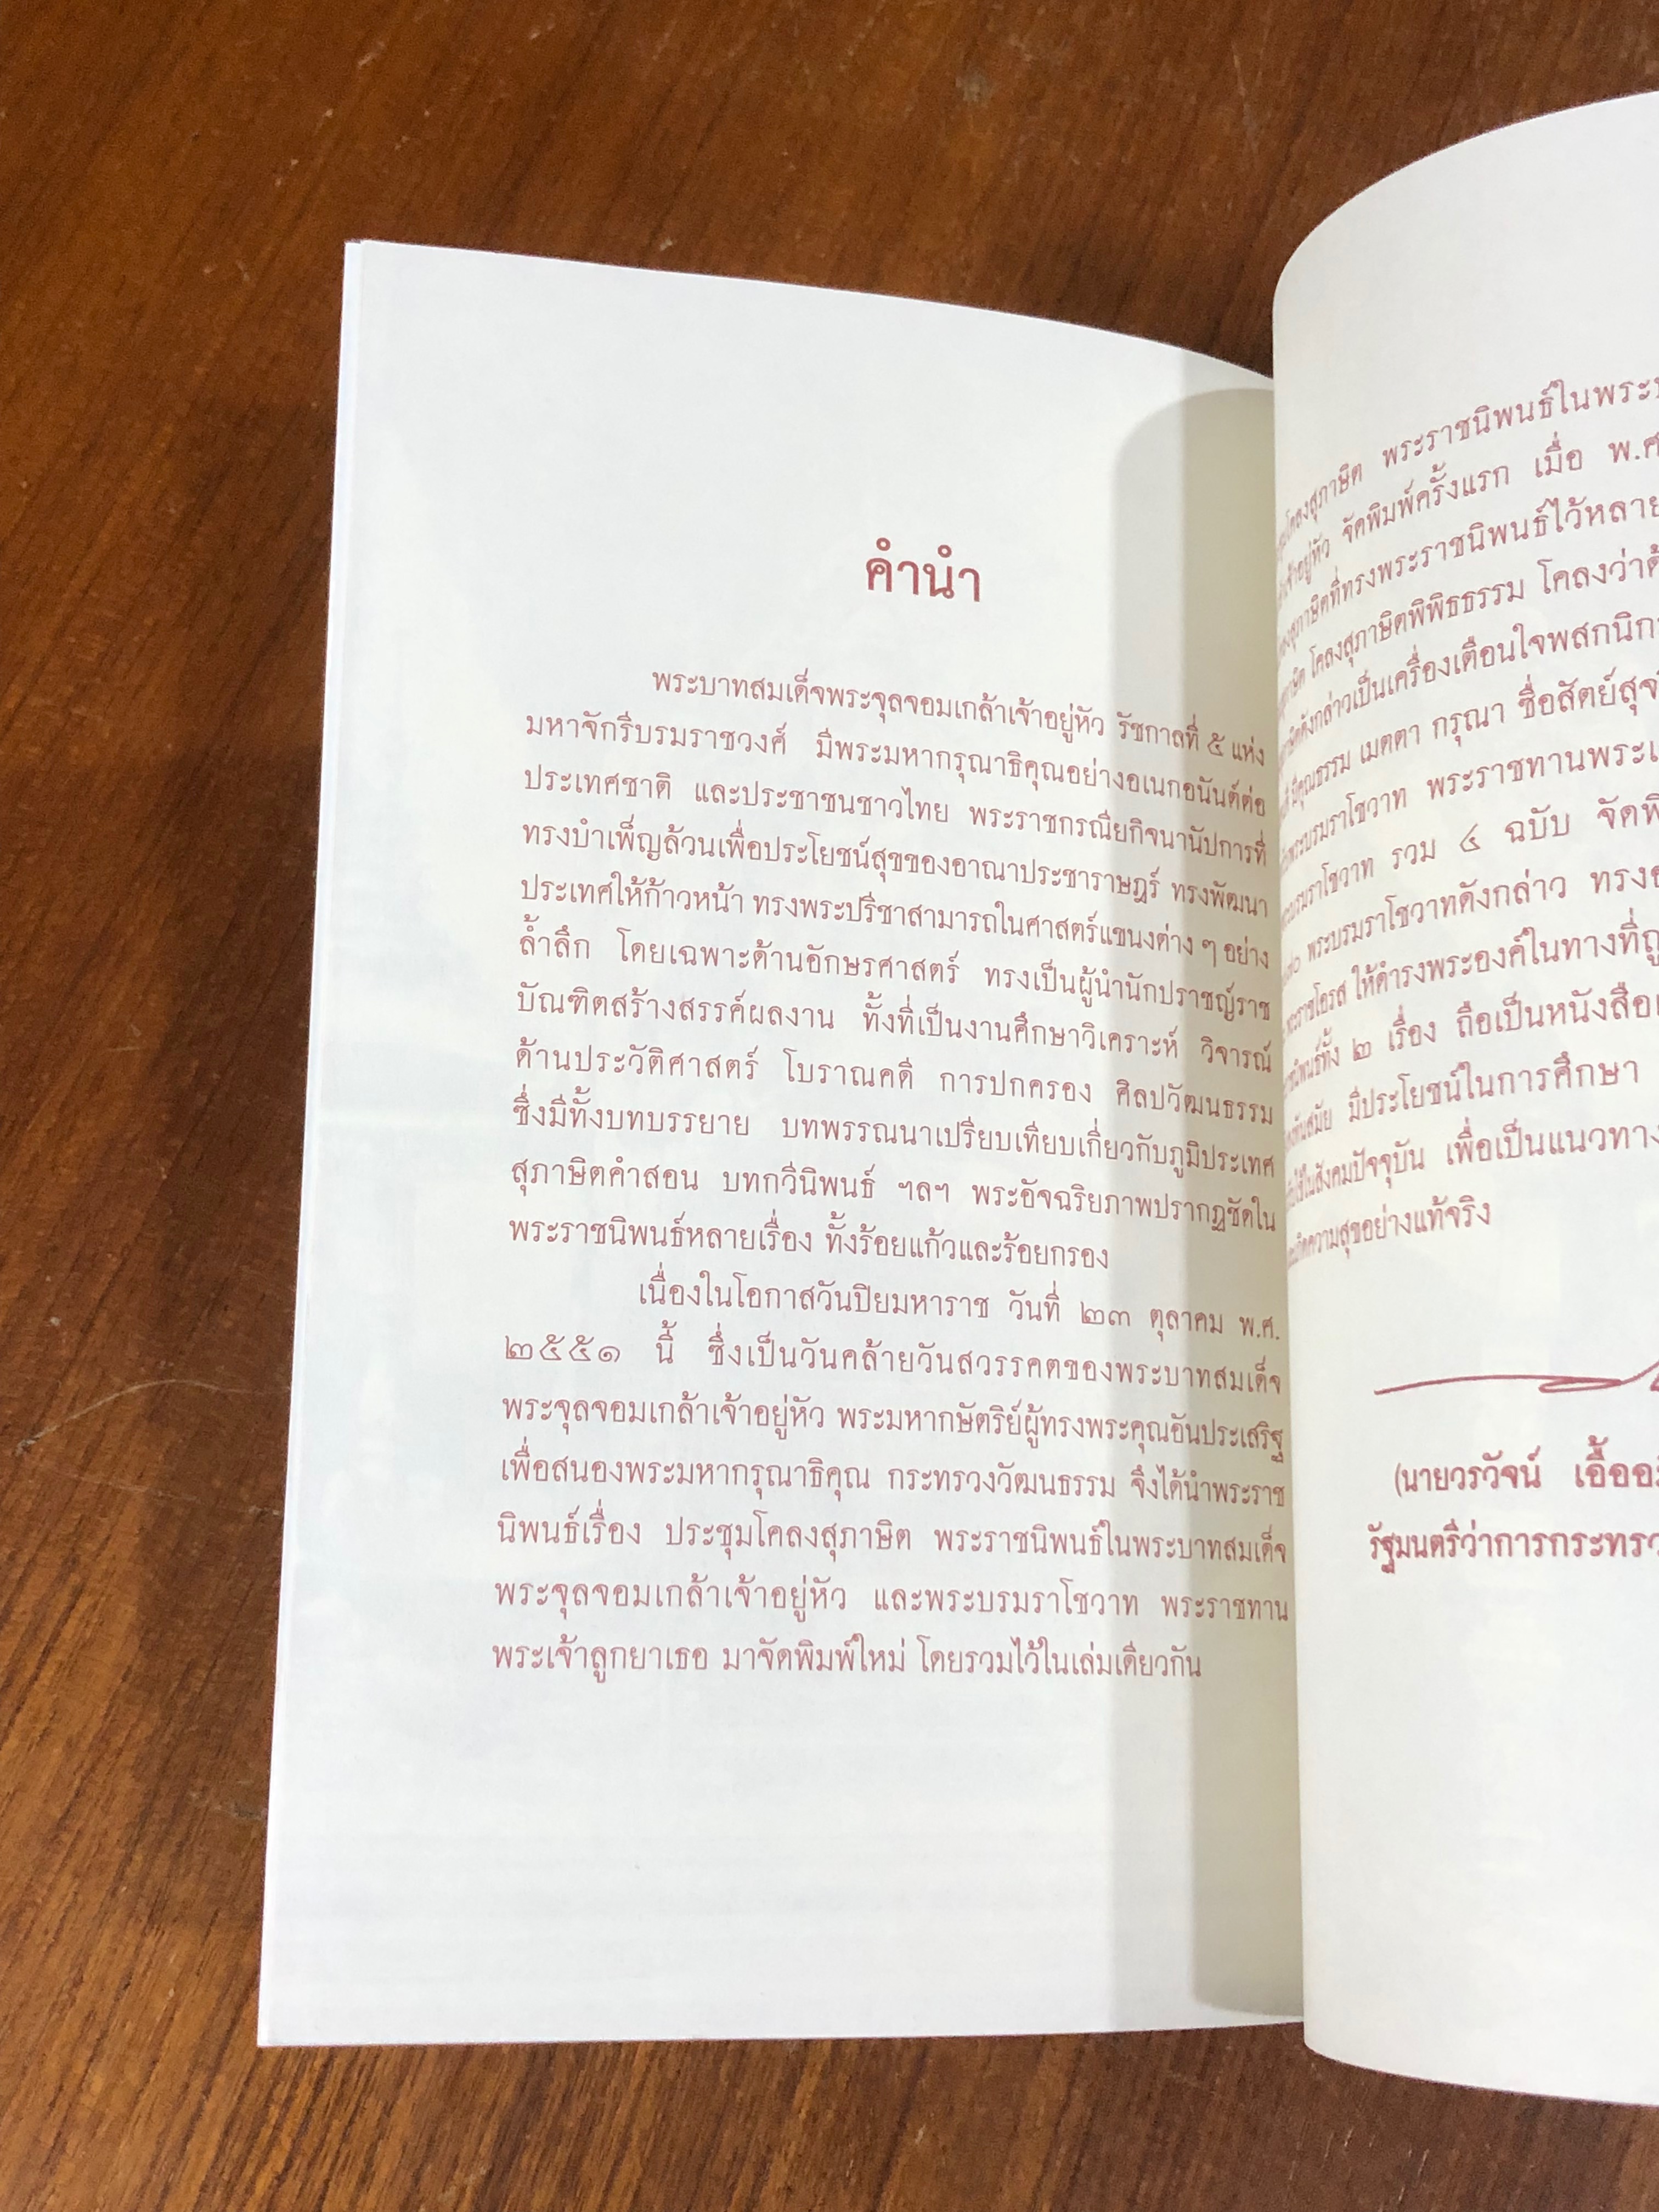 คำนำ
พระบาทสมเด็จพระจุลจอมเกล้าเจ้าอยู่หัว รัชกาลที่ ๕ แห่ง
มหาจักรีบรมราชวงศ์ มีพระมหากรุณาธิคุณอย่างอเนกอนันต์ต่อ
ประเทศชาติ และประชาชนชาวไทย พระราชกรณียกิจนานัปการที่
ทรงบำเพ็ญล้วนเพื่อประโยชน์สุขของอาณาประชาราษฎร์ ทรงพัฒนา
ประเทศให้ก้าวหน้า ทรงพระปรีชาสามารถในศาสตร์แขนงต่าง ๆ อย่าง
ล้ำลึก โดยเฉพาะด้านอักษรศาสตร์ ทรงเป็นผู้นำนักปราชญ์ราช
บัณฑิตสร้างสรรค์ผลงาน ทั้งที่เป็นงานศึกษาวิเคราะห์ วิจารณ์
ด้านประวัติศาสตร์ โบราณคดี การปกครอง ศิลปวัฒนธรรม
ซึ่งมีทั้งบทบรรยาย บทพรรณนาเปรียบเทียบเกี่ยวกับภูมิประเทศ
สุภาษิตคำสอน บทกวีนิพนธ์ ฯลฯ พระอัจฉริยภาพปรากฏชัดใน
พระราชนิพนธ์หลายเรื่อง ทั้งร้อยแก้วและร้อยกรอง
เนื่องในโอกาสวันปิยมหาราช วันที่ ๒๓ ตุลาคม พ.ศ.
๒๕๕๑ นี้ ซึ่งเป็นวันคล้ายวันสวรรคตของพระบาทสมเด็จ
พระจุลจอมเกล้าเจ้าอยู่หัว พระมหากษัตริย์ผู้ทรงพระคุณอันประเสริฐ
เพื่อสนองพระมหากรุณาธิคุณ กระทรวงวัฒนธรรม จึงได้นำพระราช
นิพนธ์เรื่อง ประชุมโคลงสุภาษิต พระราชนิพนธ์ในพระบาทสมเด็จ
พระจุลจอมเกล้าเจ้าอยู่หัว และพระบรมราโชวาท พระราชทาน
พระเจ้าลูกยาเธอ มาจัดพิมพ์ใหม่ โดยรวมไว้ในเล่มเดียวกัน
โคลงสุภาษิต พระราชนิพนธ์ใน
เจ้าอยู่หัว จัดพิมพ์ครั้งแรก เมื่อ พ.ศ
สุภาษิตที่ทรงพระราชนิพนธ์ไว้หลาย
โคลงสุภาษิตพิพิธธรรม โคลงว่าด้
ดังกล่าวเป็นเครื่องเตือนใจพสกนิก
มีคุณธรรม เมตตา กรุณา ซื่อสัตย์สุจ
พระบรมราโชวาท พระราชทานพระเ
พระบรมราโชวาท รวม ๔ ฉบับ จัดพิ
พระบรมราโชวาทดังกล่าว ทรง
พระราชโอรส ให้ดำรงพระองค์ในทางที่ถู
นิพนธ์ทั้ง ๒ เรื่อง ถือเป็นหนังสือ
ทันสมัย มีประโยชน์ในการศึกษา
ใช้ในสังคมปัจจุบัน เพื่อเป็นแนวทาง
เกิดความสุขอย่างแท้จริง
(นายวรวัจน์ เอื้ออ
รัฐมนตรีว่าการกระทรว